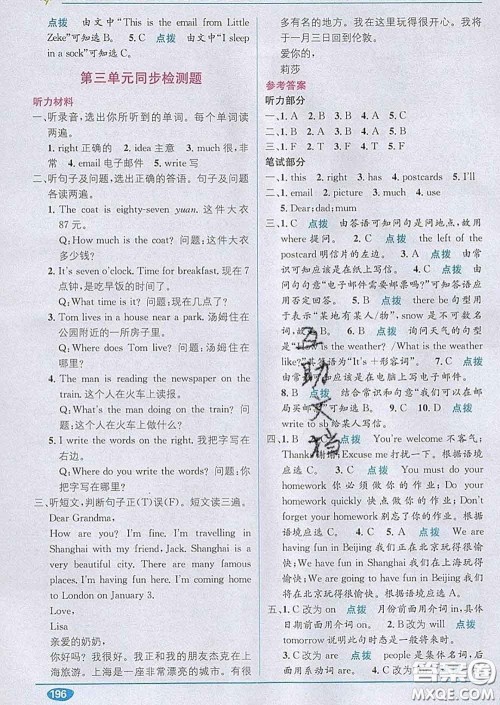 况 由文中"This is the email from Little
Zeke"可知选B。 5. C 点拨 由文中"I sleep
in a sock"可知选C。
第三单元同步检测题
听力材料
一、听录音,选出你所听到的单词。每个单词读
两遍。
1. right 正确的 2. idea 主意 3. much 很,非
常 4. email 电子邮件 5. write 写
二、听句子及问题,选出正确的答语。句子及问题
各读两遍。
1. The coat is eighty-seven yuan. 这件大衣
87元。
Q:How much is the coat? 问题:这件大衣
多少钱?
2. It's seven o'clock. Time for breakfast. 现在7
点钟,是吃早饭的时间了。
Q:What time is it? 问题:现在几点了?
3. Tom lives in a house near a park. 汤姆住在
公园附近的一所房子里。
Q:Where does Tom live? 问题:汤姆住在
哪里?
4. The man is reading the newspaper on the
train. 这个人在火车上读报。
Q:What's the man doing on the train? 问
题:这个人在火车上做什么?
5. I write the words on the right. 我把字写在
右边。
Q:Where do you write the words? 问题:你
把字写在哪里?
三、听短文,判断句子正(T)误(F)。短文读三遍。
Dear Grandma,
How are you? I'm fine. I'm travelling in
Shanghai with my friend, Jack. Shanghai is a
very beautiful city. There are many famous
places. I am having fun here. I will come
to London on January 3.
Love,
Lisa
亲爱的奶奶,
你好吗? 我很好。我正在和我的朋友杰克在
上海旅游。上海是一座非常漂亮的城市。有很
196
多有名的地方。我在这里玩得很开心。我将
于一月三日回到伦敦。
爱你的,
莉莎
参考答案
听力部分
一、1. A 2. B 3. B 4. A 5. A
二、1. A 2. B 3. A 4. A 5. C
三、1. F 2. T 3. F 4. T 5. T
笔试部分
一、1. this 2. right 3. has 4. postcards 5. I'll
二、1. email 2. picture 3. much 4. use
5. Dear;dad;mum
三、1. C 点拨 由答语可知问句是问地点,故用
where 提问。 2. B 点拨 the left of the
postcard 明信片的左边。 3. C 点拨 由常
识可知应该是在纸上写信。 4. B 点拨 由
问句意为"电子邮件需要邮票吗?"可知答语应
用否定回答。 5. B 点拨 there be 句型用
于表示"某地有某人/物",snow 是不可数名
词,故 B。 6. A 点拨 询问天气的句型是
"How is the weather? /What is the weather
like?"其答语为"It's+形容词"。 7. C 点拨
由常识可知应该是在电脑上写电子邮件。
8. B 点拨 结合常识和句意"我们可以在邮
局买邮票"可知选B。 9. C 10. D 点拨
write to sb 给某人写信。
四、1. C 点拨 You're welcome 不客气;
Thank 谢谢;Excuse me 打扰一下。根据语境
应选C。 2. C 点拨 You must do your
homework 你必须做你的作业;Do your
homework quickly 快点做你的作业;Don't
forget your homework 别忘了你的作业。根据
语境应选C。 3. A 点拨 We are having
fun in Beijing 我们正在北京玩得很愉快;We
have fun in Shanghai 我们在上海玩得愉快;
We are having fun in Beijing 我们正在北京玩
得很愉快。根据语境应选A。
五、1. C 改为 on 点拨 月份前面用介词 in,具体
日期前面用介词 on。 2. B 改为 will 点拨
由 tomorrow 可知此句时态是一般将来时。
3. C 改为 are 点拨 people 是集体名词,后
面用系动词 are。
互助文档
答案圈
MXQE.COM